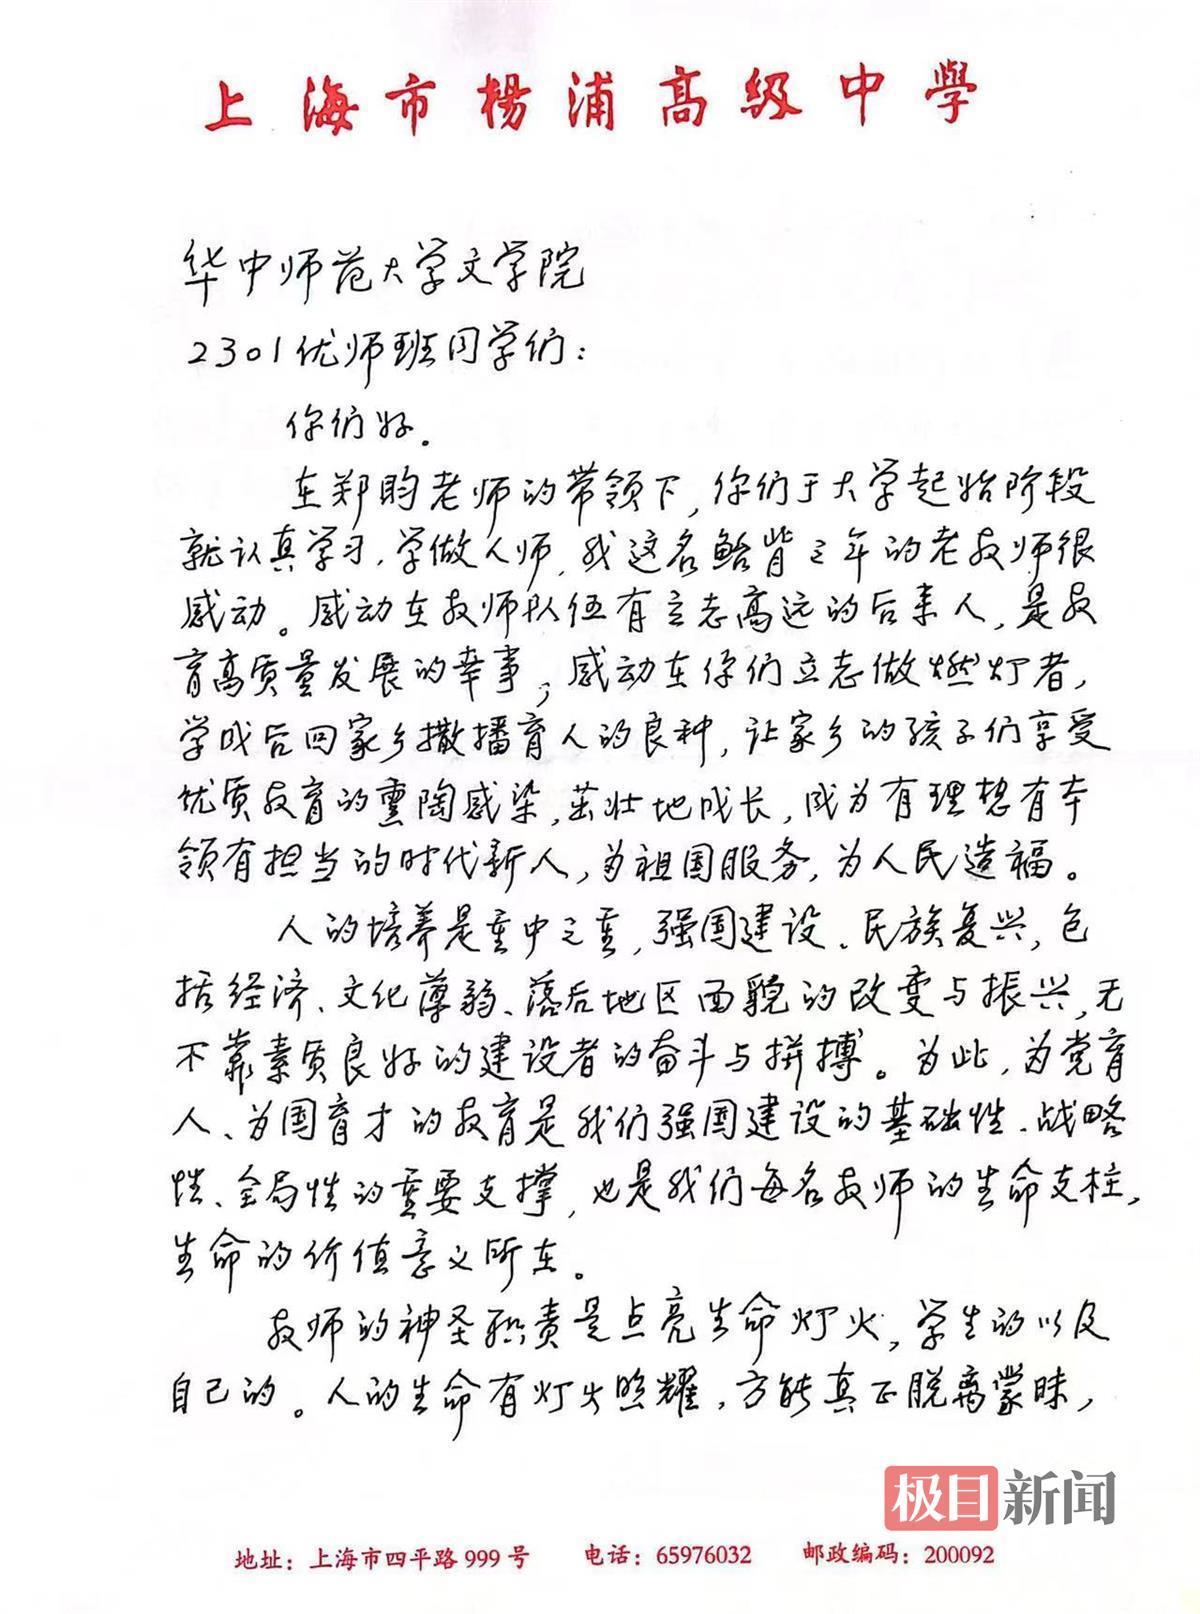 上海市杨浦高级中学
华中师范大学文学院
2301优师班同学们：
你们好.
在郑昀老师的带领下，你们于大学起始阶段
就认真学习，学做人师，我这名鲐背之年的老教师很
感动。感动在教师队伍有立志高远的后来人，是教
育高质量发展的幸事；感动在你们立志做燃灯者，
学成后回家乡撒播育人的良种，让家乡的孩子们享受
优质教育的熏陶感染，茁壮地成长，成为有理想有本
领有担当的时代新人，为祖国服务，为人民造福。
人的培养是重中之重，强国建设、民族复兴，包
括经济、文化薄弱、落后地区面貌的改变与振兴，无
不靠素质良好的建设者的奋斗与拼搏。为此，为党育
人、为国育才的教育是我们强国建设的基础性、战略
性、全局性的重要支撑，也是我们每名教师的生命支柱，
生命的价值意义所在。
教师的神圣职责是点亮生命灯火，学生的以及
自己的。人的生命有灯火照耀，方能真正脱离蒙昧，
极目新闻
地址：上海市四平路999号 电话：65976032 邮政编码：200092